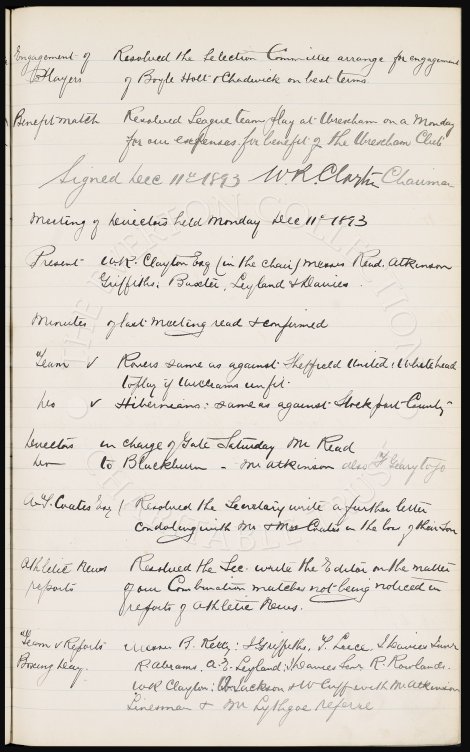 Engagement of Resolved the Selection Committee arrange for engagement
Players of Boyle Holt & Chadwick on best terms
Benefit match Resolved League team play at Wrexham on a Monday
for our expenses for benefit of the Wrexham Club
Signed Dec 11th 1893 W.R. Clayton Chairman
Meeting of Directors held Monday Dec 11th 1893
Present W.R. Clayton Esq (in the chair) Messrs Read, Atkinson
Griffiths, Baxter, Leyland & Davies
Minutes of last Meeting read & confirmed
Team v Rovers same as against Sheffield United, Whitehead
to play if Williams unfit
Do v Hibernians: same as against Stockport County
Directors in charge of Gate Saturday Mr Read
Do to Blackburn - Mr Atkinson also F Geary to go
A.T. Coates Esq Resolved the Secretary write a further letter
condoling with Mr & Mrs Coates in the loss of their Son
Athletic News Resolved the Sec. write the Editor on the matter
reports of our Combination matches not being noticed in
reports of Athletic News.
Team v Reports Messrs R. Kelly: J Griffiths, T. Leece, J Davies Senr
Boxing Day. R Abrams, A.E. Leyland, R. Rowlands
W R Clayton: Jackson & W Cuff with Mr Atkinson
Linesman & Mr Lythgoe referee
THE EVERTON COLLECTION
CHARITABLE TRUST